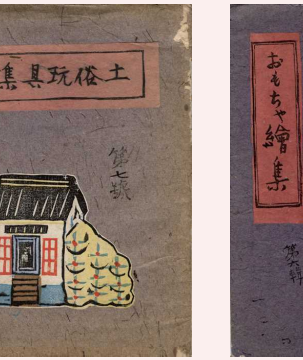 土俗玩具集
第七號
おもちゃ繪集